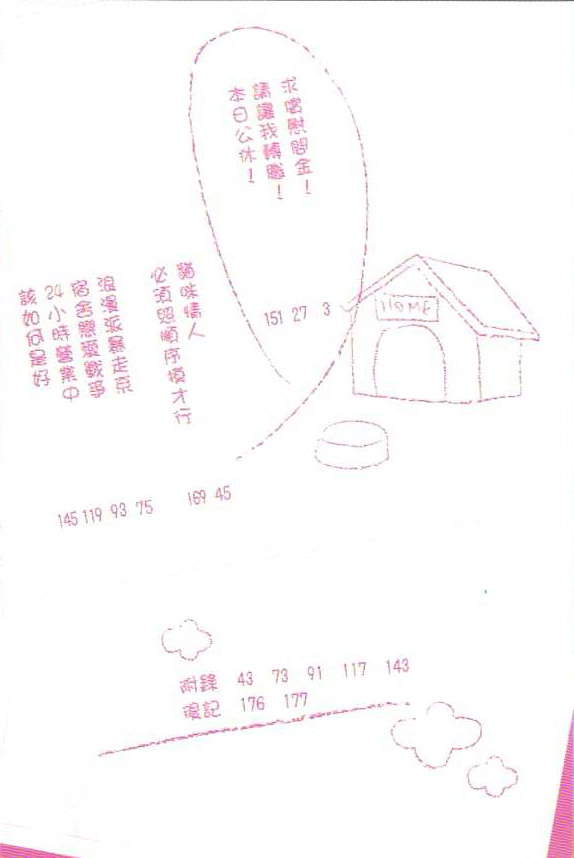 求償慰問金！
請讓我轉職！
本日公休！
3
27
151
HOME
貓咪情人
必須照順序摸才行
45
169
浪漫派暴走族
宿舍戀愛戰爭
24小時營業中
該如何是好
75
93
119
145
附錄 43 73 91 117 143
後記 176 177